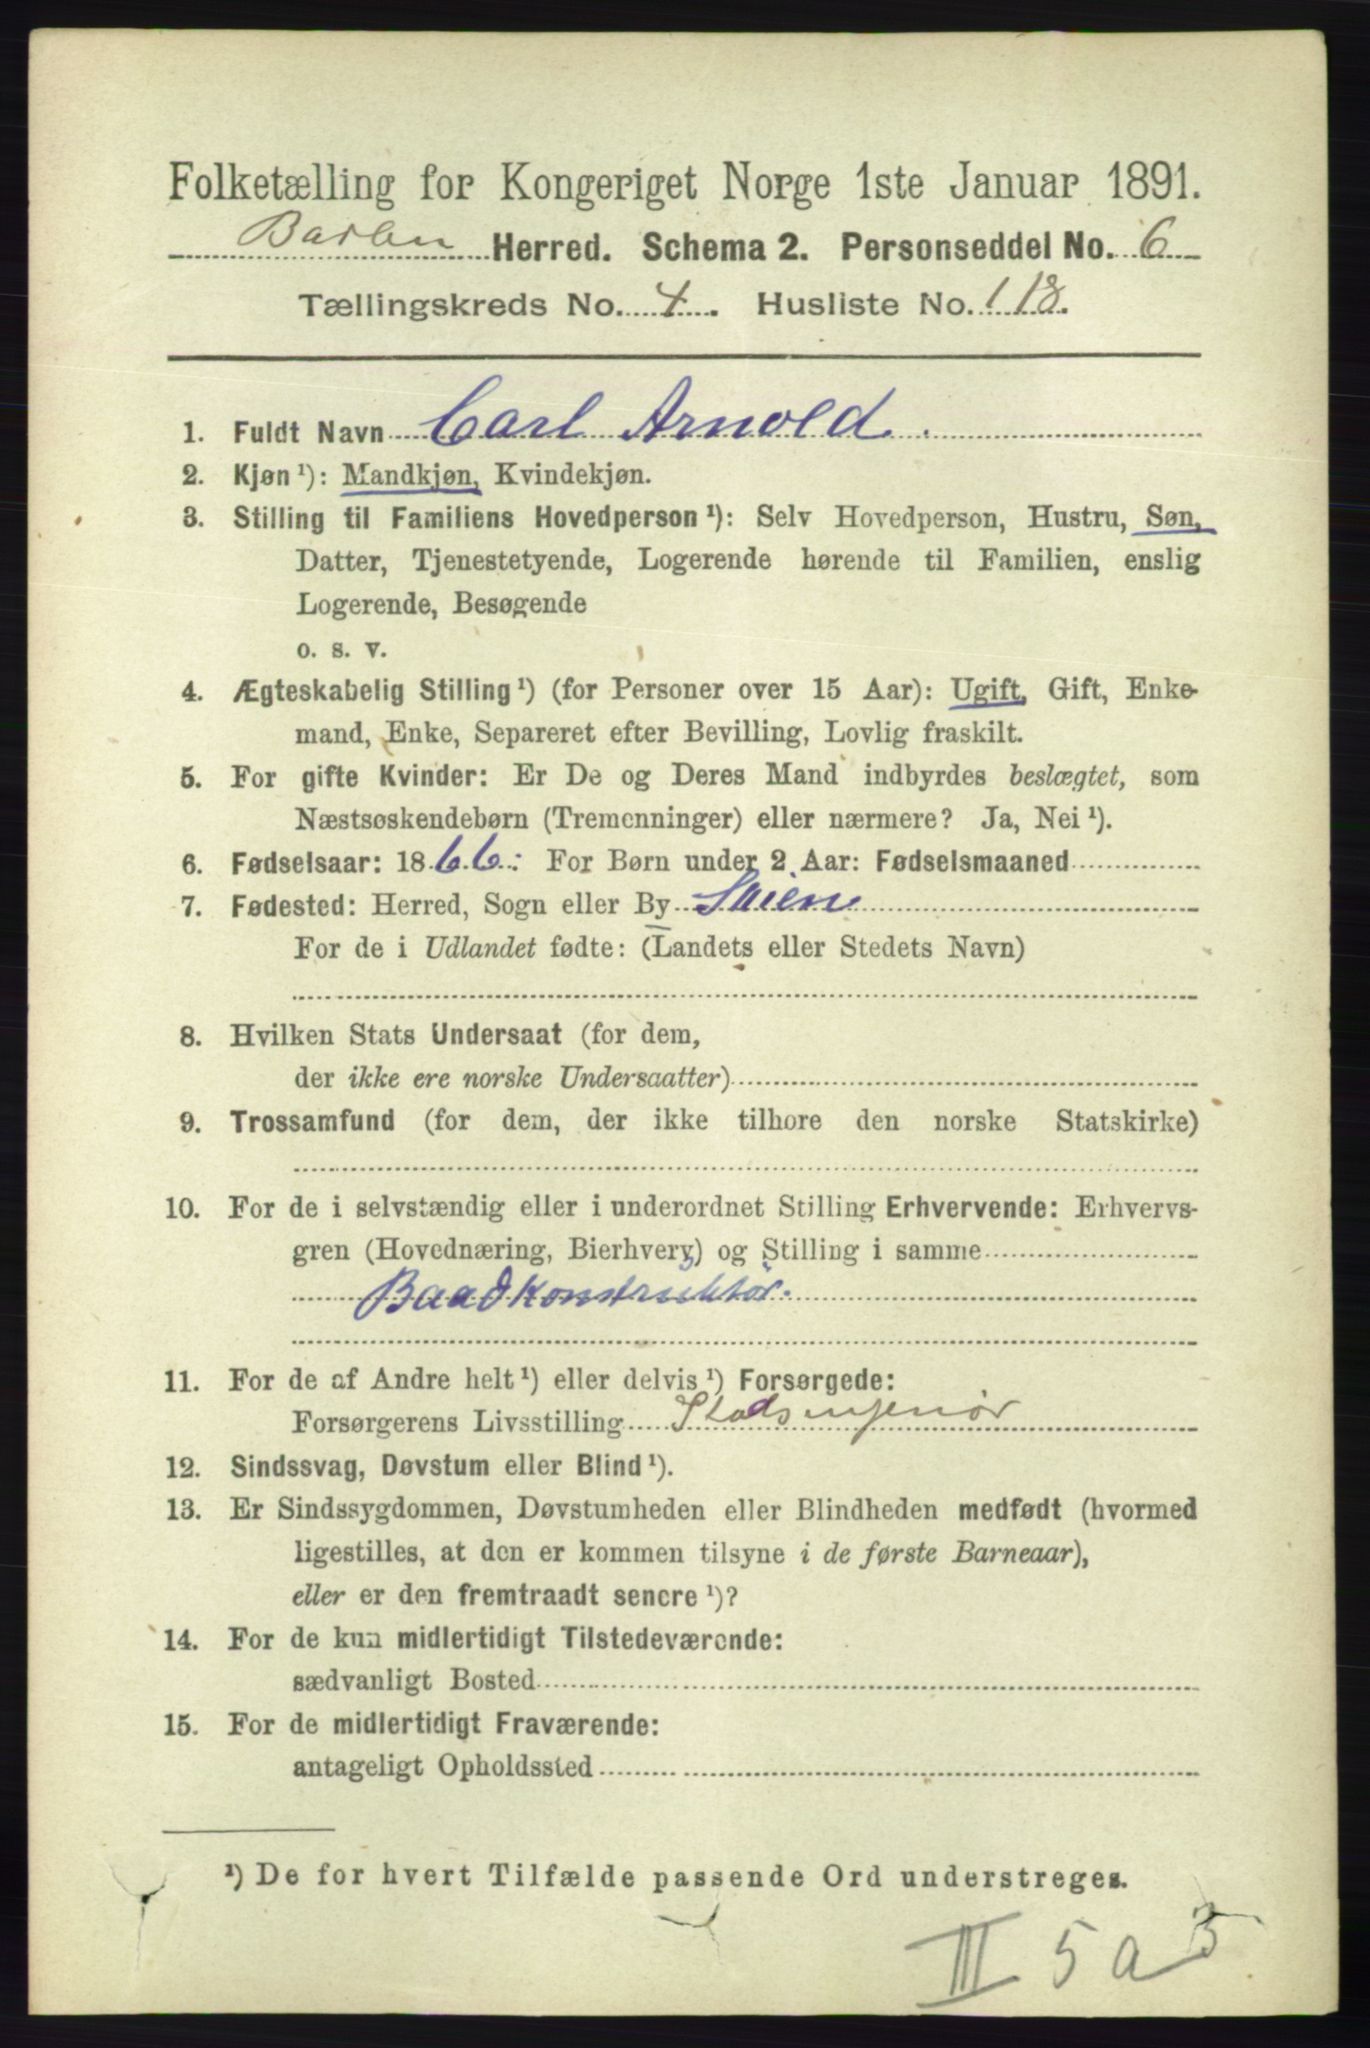 Folketælling for Kongeriget Norge 1ste Januar 1891.
Barbu Herred. Schema 2. Personseddel No. 6
Tællingskreds No. 4. Husliste No. 118.
1. Fuldt Navn Carl Arnold.
2. Kjøn¹): Mandkjøn, Kvindekjøn.
3. Stilling til Familiens Hovedperson¹): Selv Hovedperson, Hustru, Søn,
Datter, Tjenestetyende, Logerende hørende til Familien, enslig
Logerende, Besøgende
o. s. v.
4. Ægteskabelig Stilling¹) (for Personer over 15 Aar): Ugift, Gift, Enke-
mand, Enke, Separeret efter Bevilling, Lovlig fraskilt.
5. For gifte Kvinder: Er De og Deres Mand indbyrdes beslægtet, som
Næstsøskendebørn (Tremenninger) eller nærmere? Ja, Nei¹).
6. Fødselsaar: 1866: For Børn under 2 Aar: Fødselsmaaned
7. Fødested: Herred, Sogn eller By Skien
For de i Udlandet fødte: (Landets eller Stedets Navn)
8. Hvilken Stats Undersaat (for dem,
der ikke ere norske Undersaatter)
9. Trossamfund (for dem, der ikke tilhore den norske Statskirke)
10. For de i selvstændig eller i underordnet Stilling Erhvervende: Erhvervs-
gren (Hovednæring, Bierhverv) og Stilling i samme
Baadkonstruktør.
11. For de af Andre helt¹) eller delvis¹) Forsørgede:
Forsørgerens Livsstilling Stadsingeniør
12. Sindssvag, Døvstum eller Blind¹).
13. Er Sindssygdommen, Døvstumheden eller Blindheden medfødt (hvormed
ligestilles, at den er kommen tilsyne i de første Barneaar),
eller er den fremtraadt senere¹)?
14. For de kun midlertidigt Tilstedeværende:
sædvanligt Bosted
15. For de midlertidigt Fraværende:
antageligt Opholdssted
¹) De for hvert Tilfælde passende Ord understreges.
III 5 a 3